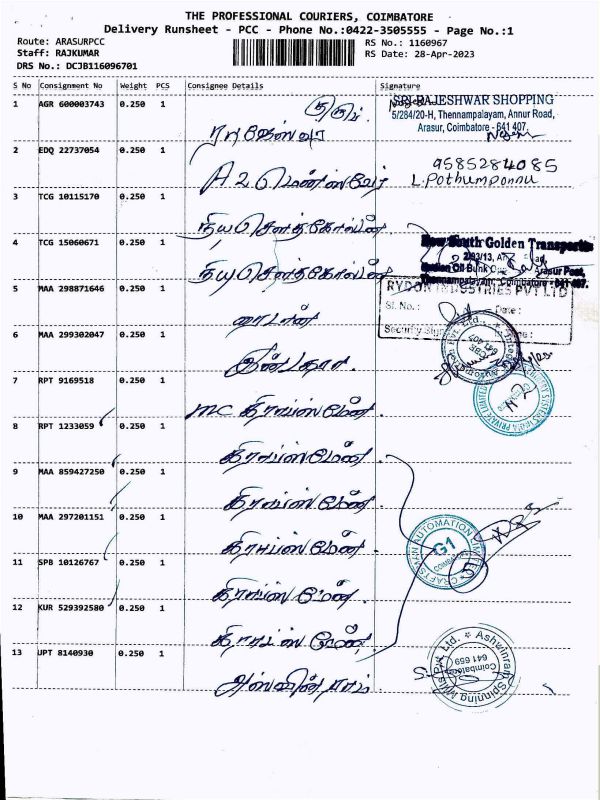 THE PROFESSIONAL COURIERS, COIMBATORE
Delivery Runsheet - PCC - Phone No.:0422-3505555 - Page No.:1
Route: ARASURPCC
RS No.: 1160967
Staff: RAJKUMAR
RS Date: 28-Apr-2023
DRS No.: DCJB116096701
S No Consignment No Weight PCS Consignee Details Signature
1 AGR 600003743 0.250 1
SRI RAJESHWAR SHOPPING
5/284/20-H, Thennampalayam, Annur Road,
Arasur, Coimbatore - 641 407.
2 EDQ 22737054 0.250 1
A2 மென்ஸ்வேர்
9585284085
L.Pothumponnu
3 TCG 10115170 0.250 1
நியூ சௌத் கோல்டன்
4 TCG 15060671 0.250 1
நியூ சௌத் கோல்டன்
New South Golden Transports
Arasur Post,
Thennampalayam, Coimbatore - 641 407.
5 MAA 298871646 0.250 1
RYDON INDUSTRIES PVT LTD
Sl. No.: Date :
6 MAA 299302047 0.250 1
7 RPT 9169518 0.250 1
MC கிராப்ஸ்மேன்
8 RPT 1233059 0.250 1
கிராப்ஸ்மேன்
9 MAA 859427250 0.250 1
கிராப்ஸ்மேன்
10 MAA 297201151 0.250 1
கிராப்ஸ்மேன்
CRAFTSMAN AUTOMATION LIMITED
G1
11 SPB 10126767 0.250 1
கிராப்ஸ்மேன்
12 KUR 529392580 0.250 1
கிராப்ஸ்மேன்
13 UPT 8140930 0.250 1
அஸ்வின்ராம்
Ashwinram Spinning Mills Pvt. Ltd.
Coimbatore
641 659